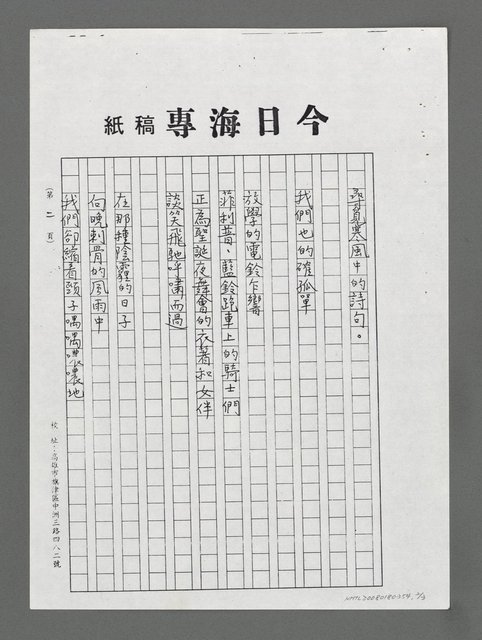 今日海專稿紙
尋覓寒風中的詩句。
我們也的確孤單
放學的電鈴乍響
菲利普、藍鈴跑車上的騎士們
正為聖誕夜舞會的衣著和女伴
談笑飛馳呼嘯而過
在那種陰霾的日子
向晚刺骨的風雨中
我們卻縮着頸子喁喁噥噥地
(第二頁)
校址:高雄市旗津區中洲三路四八二號